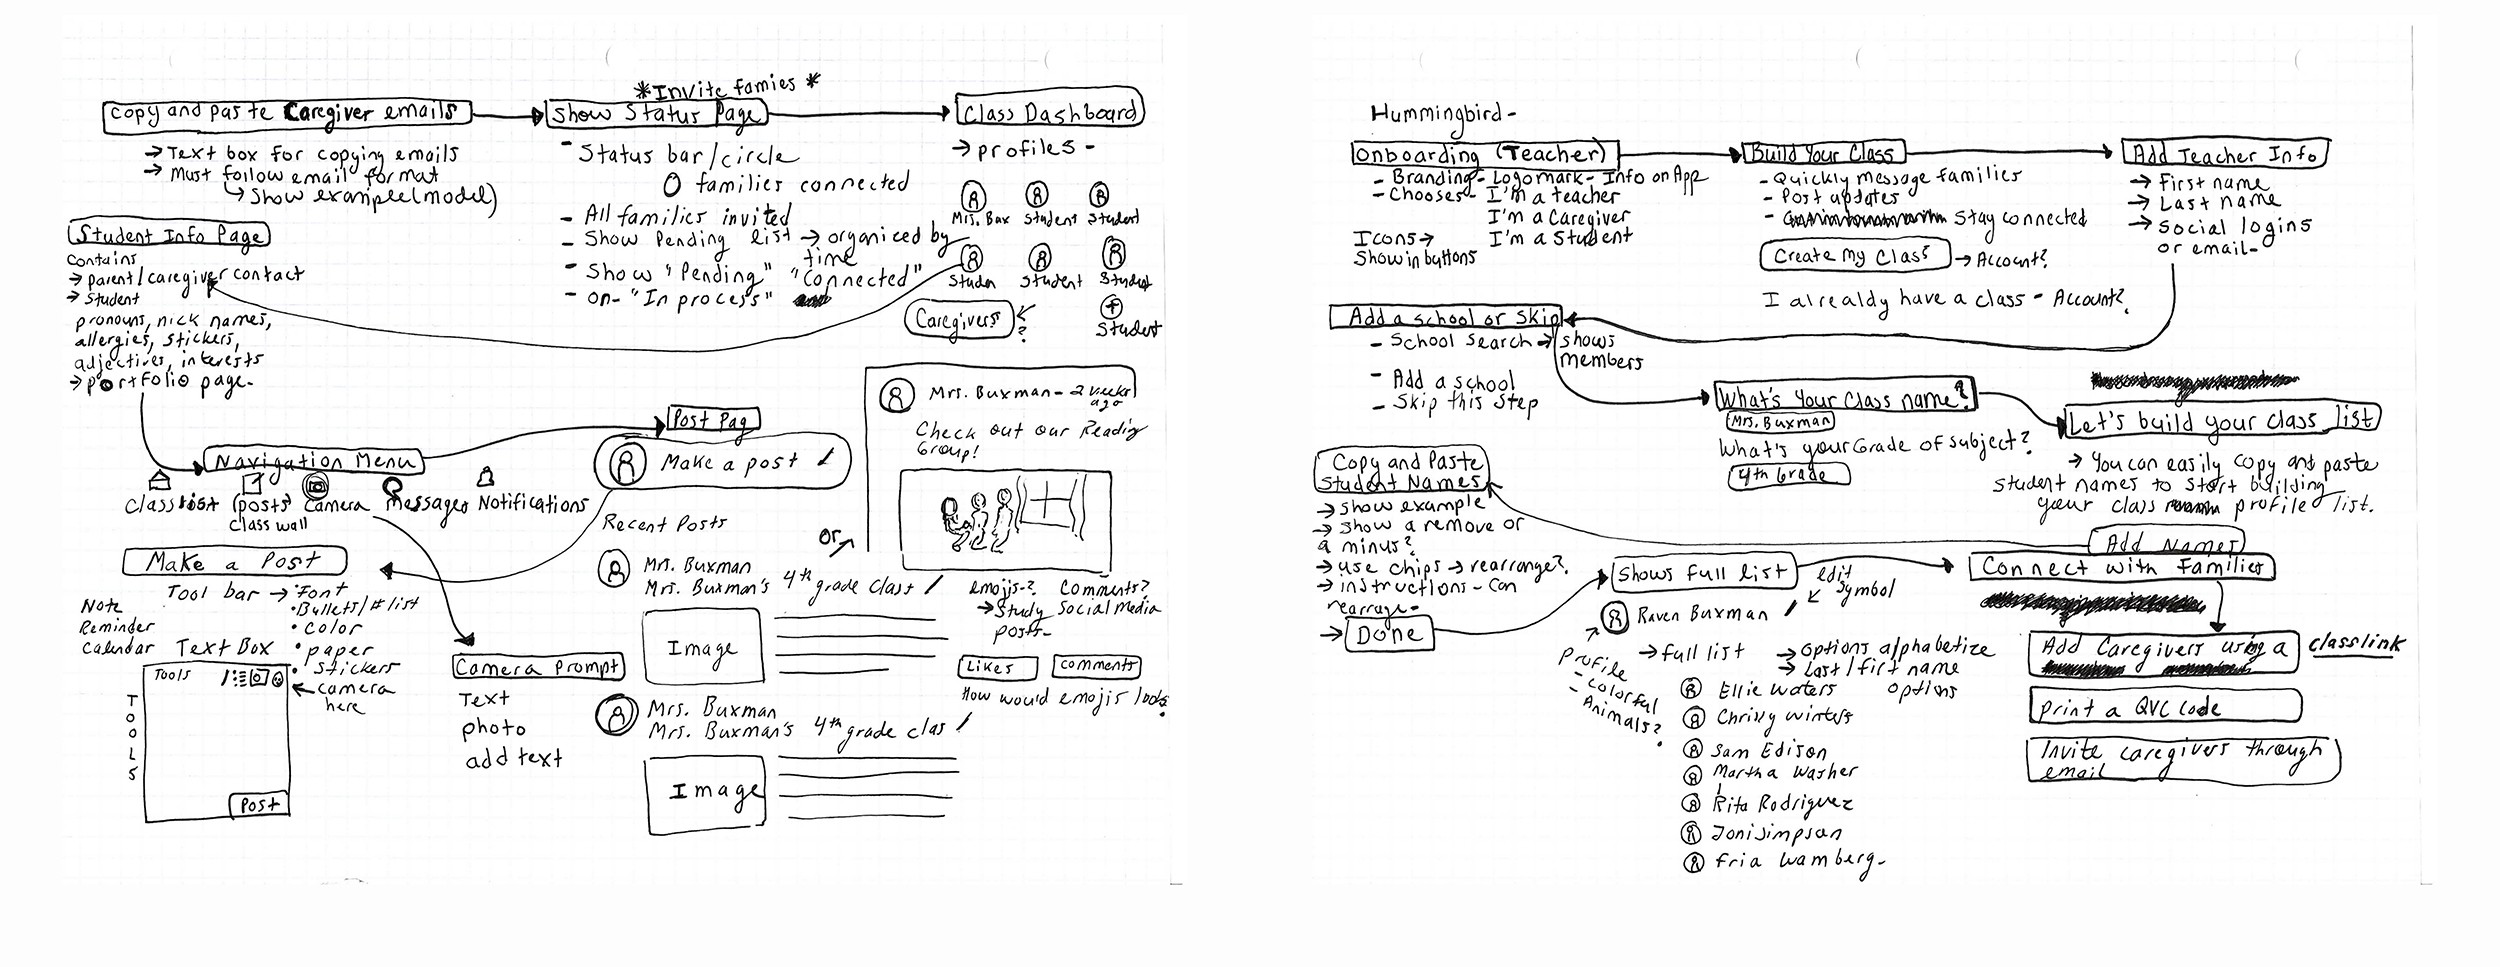 *Invite famies *
Copy and paste Caregiver emails
Show Status Page
Class Dashboard
→ Text box for copying emails
→ Must follow email format
↳ Show example (model)
- Status bar/circle
0 families connected
- All families invited
- Show Pending list → organized by
time
- Show "Pending" "Connected"
- on- "In process"
→ profiles -
Mrs. Bux Student Student
Studen Student Student
Caregivers
?
Student
Student Info Page
Contains
→ parent/caregiver contact
→ Student
pronouns, nick names,
allergies, stickers,
adjectives, interests
→ portfolio page-
Navigation Menu
Class list (posts) Camera Messages Notifications
Class wall
Post Pag
Make a post
Recent Posts
Mrs. Buxman
Mrs. Buxman's 4th grade class
Image
Mrs. Buxman
Mrs. Buxman's 4th grade clas
Image
or
Mrs. Buxman - 2 weeks
ago
Check out our Reading
Group!
emojis-? Comments?
→ Study Social media
posts-
Likes comments
How would emojis look?
Make a Post
Tool bar → • Font
• Bullets/# list
• Color
• paper
• Stickers
← camera
here
Note
Reminder
Calendar
Text Box
Tools
TOOLS
Post
Camera Prompt
Text
photo
add text
Hummingbird -
Onboarding (Teacher)
Build Your Class
Add Teacher Info
- Branding - Logomark - Info on App
- Chooses - I'm a teacher
I'm a Caregiver
I'm a Student
Icons →
Show in buttons
- Quickly message families
- Post updates
- Stay connected
Create my Class → Account?
I alrealdy have a class - Account?
→ First name
→ Last name
→ Social logins
or email-
Add a school or Skip
- School Search → shows
members
- Add a school
- Skip this step
What's Your Class name?
Mrs. Buxman
What's your Grade of Subject?
4th Grade
Let's build your class list
→ You can easily copy and paste
student names to start building
your class profile list.
Add Names
Copy and Paste
Student Names
→ Show example
→ Show a remove or
a minus?
→ use chips → rearrange?
→ instructions - Can
rearrage-
→ Done
Shows full list
edit
symbol
Raven Buxman
Profile
- Colorful
- Animals?
→ full list → options alphabetize
→ Last/first name
options
Ellie Waters
Chrissy winters
Sam Edison
Martha Washer
Rita Rodriguez
Joni Simpsan
Fria Wamberg-
Connect with families
Add Caregivers using a classlink
print a QVC code
Invite caregivers through
email